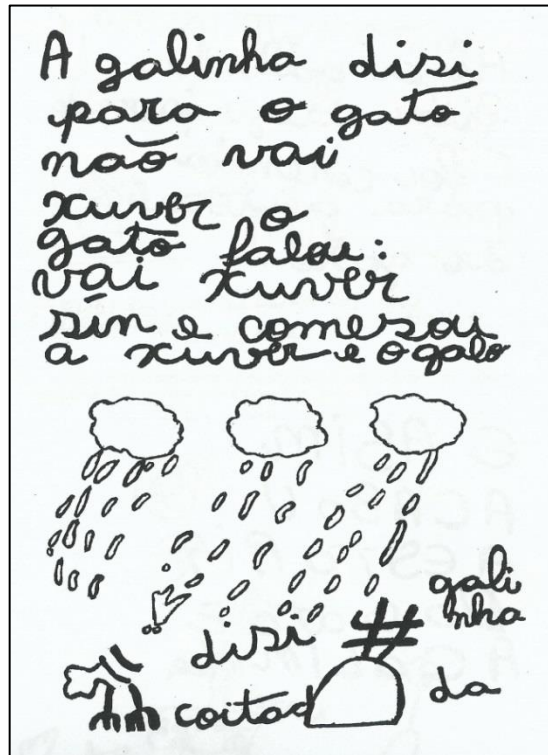 A galinha disi
para o gato
naõ vai
xuver o
gato falou:
vai xuver
sin e comesou
a xuver e o galo
disi
coitad da
gali
nha